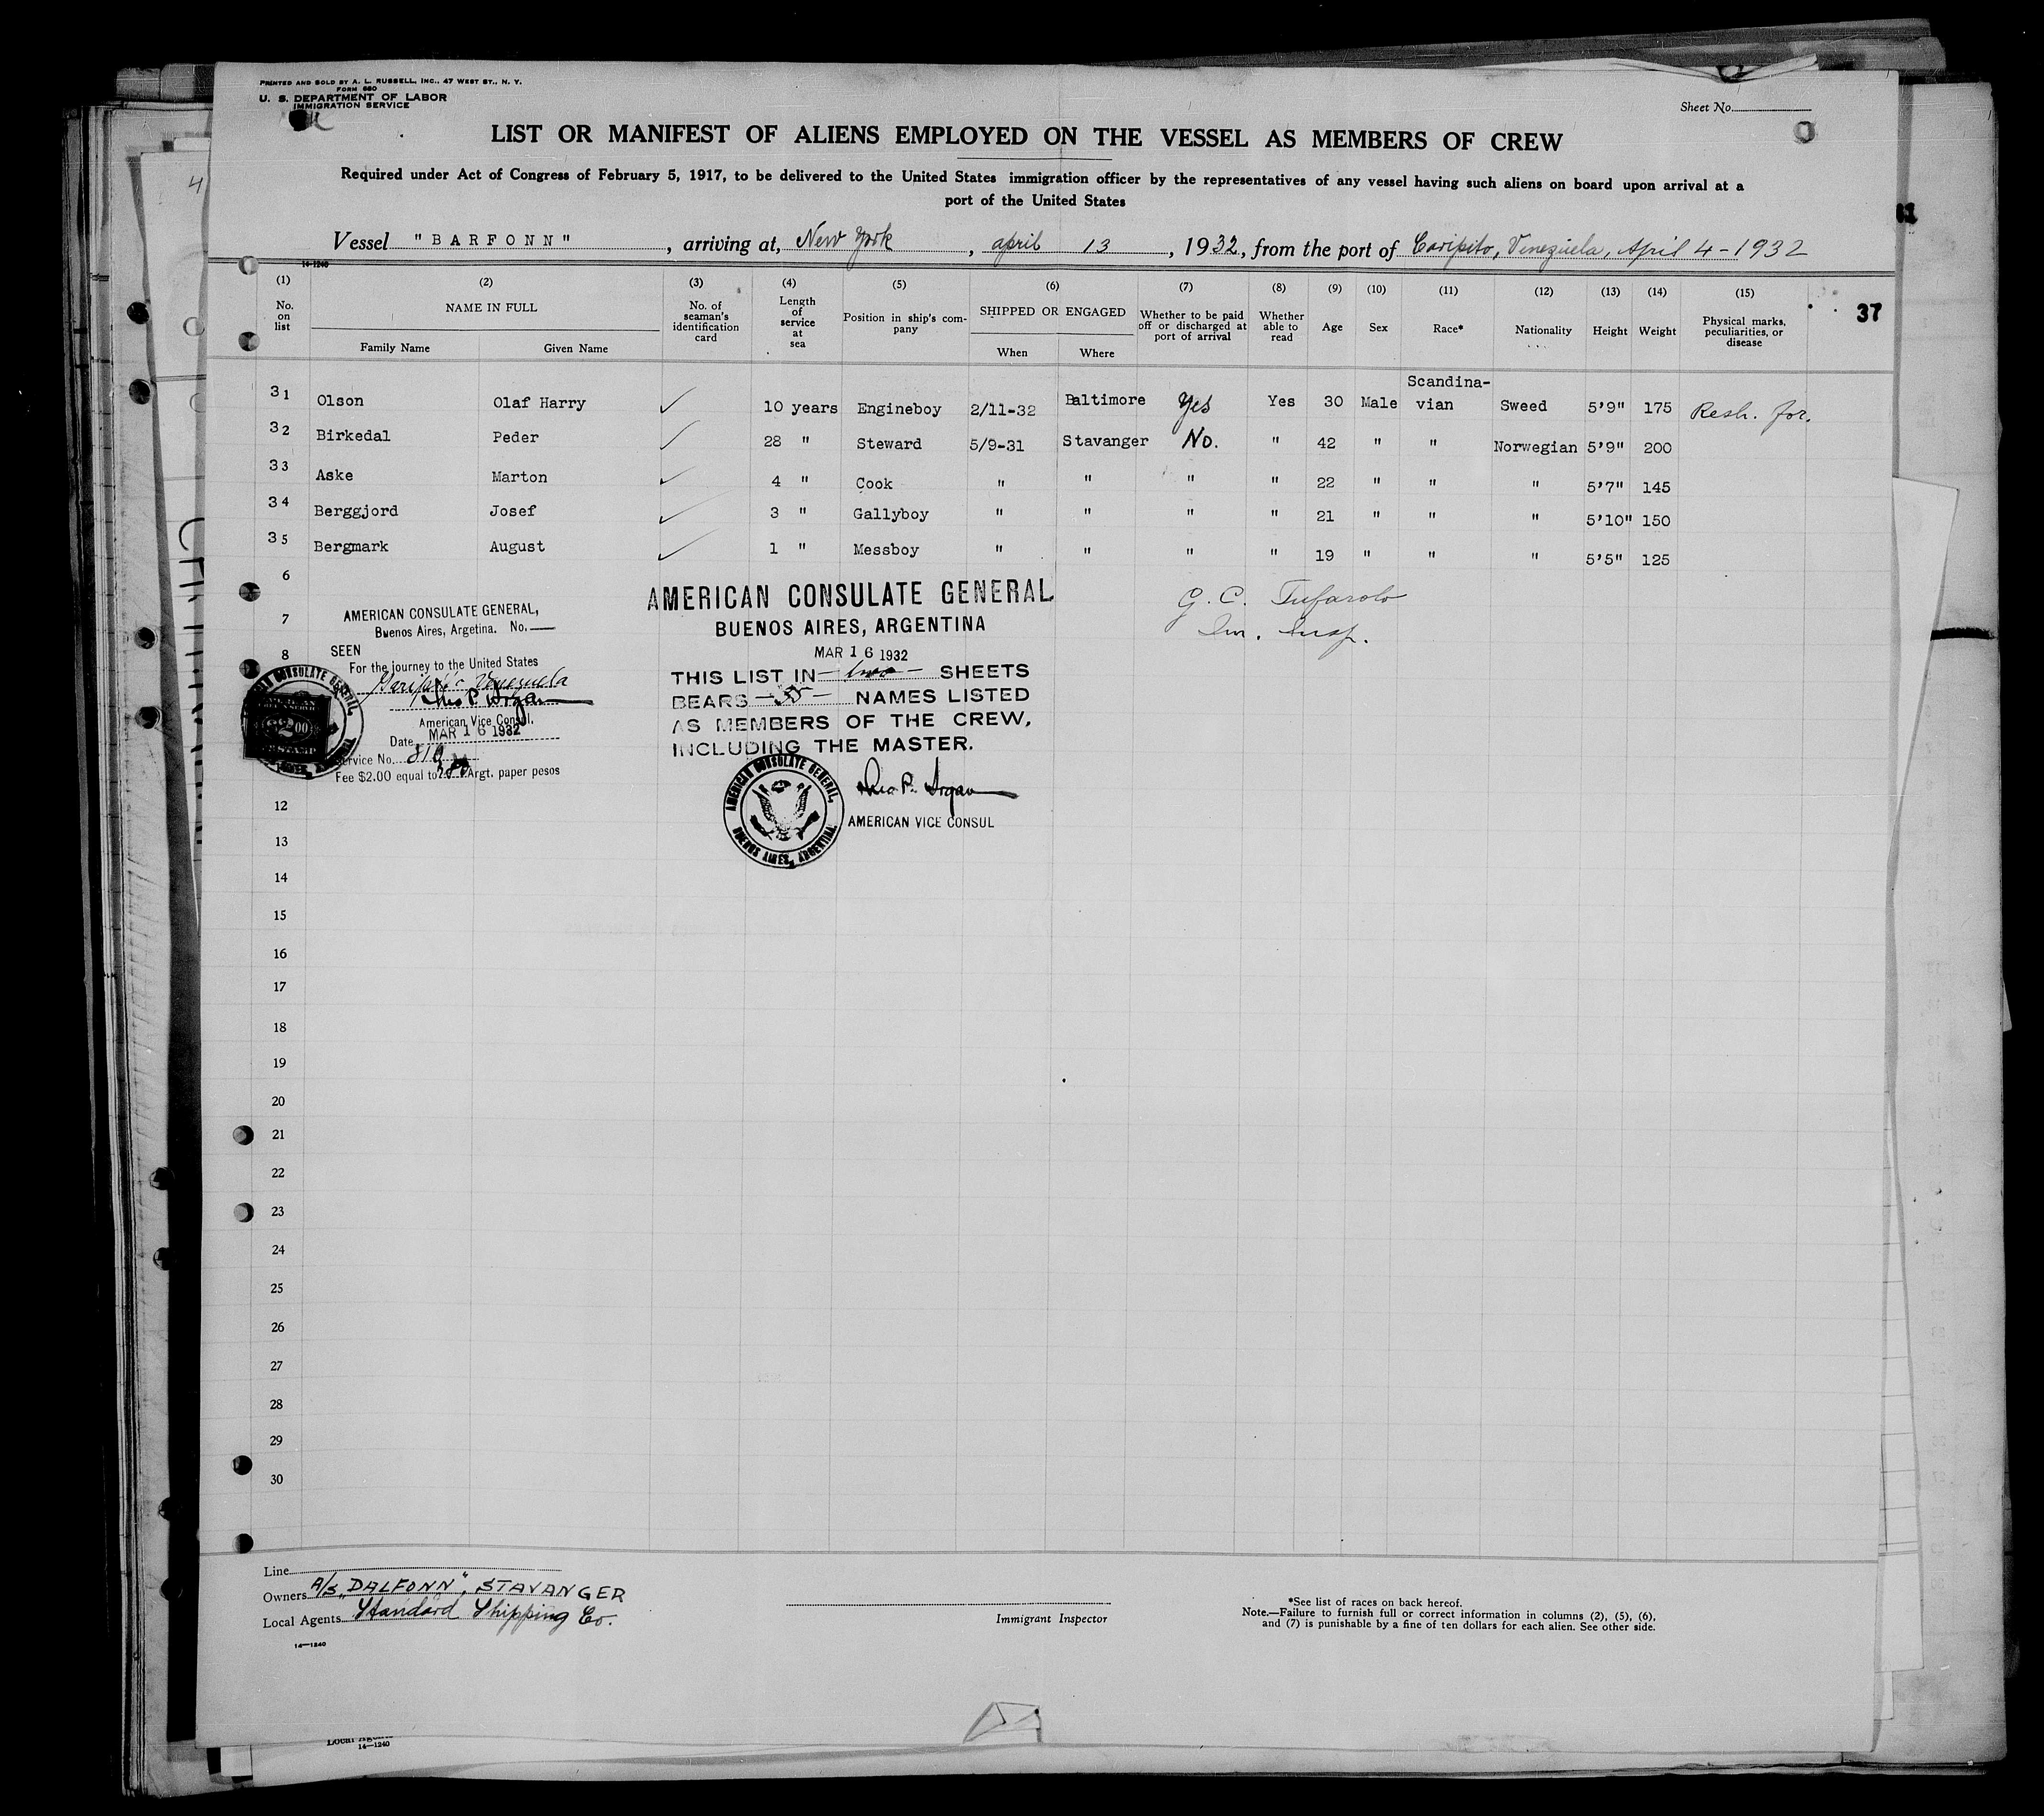 PRINTED AND SOLD BY A. L. RUSSELL, INC., 47 WEST ST., N. Y.
FORM 680
U. S. DEPARTMENT OF LABOR
IMMIGRATION SERVICE
Sheet No.
LIST OR MANIFEST OF ALIENS EMPLOYED ON THE VESSEL AS MEMBERS OF CREW
Required under Act of Congress of February 5, 1917, to be delivered to the United States immigration officer by the representatives of any vessel having such aliens on board upon arrival at a
port of the United States
Vessel "BARFONN", arriving at, New York, april 13, 1932, from the port of Caripito, Venezuela, April 4-1932
14-1240
(1) (2) (3) (4) (5) (6) (7) (8) (9) (10) (11) (12) (13) (14) (15)
No. on list
NAME IN FULL
Family Name Given Name
No. of seaman's identification card
Length of service at sea
Position in ship's company
SHIPPED OR ENGAGED
When Where
Whether to be paid off or discharged at port of arrival
Whether able to read
Age
Sex
Race*
Nationality
Height
Weight
Physical marks, peculiarities, or disease
37
31 Olson Olaf Harry ✓ 10 years Engineboy 2/11-32 Baltimore Yes Yes 30 Male Scandina-vian Sweed 5'9" 175 Resh. for.
32 Birkedal Peder ✓ 28 " Steward 5/9-31 Stavanger No. " 42 " " Norwegian 5'9" 200
33 Aske Marton ✓ 4 " Cook " " " " 22 " " " 5'7" 145
34 Berggjord Josef ✓ 3 " Gallyboy " " " " 21 " " " 5'10" 150
35 Bergmark August ✓ 1 " Messboy " " " " 19 " " " 5'5" 125
6
7
8
AMERICAN CONSULATE GENERAL,
Buenos Aires, Argetina. No.
SEEN
For the journey to the United States
Caripito Venezuela
American Vice Consul.
Date MAR 16 1932
Service No. 810
Fee $2.00 equal to Argt. paper pesos
AMERICAN CONSULATE GENERAL
BUENOS AIRES, ARGENTINA
MAR 16 1932
THIS LIST IN two SHEETS
BEARS 35 NAMES LISTED
AS MEMBERS OF THE CREW,
INCLUDING THE MASTER.
AMERICAN CONSULATE GENERAL,
BUENOS AIRES, ARGENTINA
AMERICAN VICE CONSUL
G. C. Tufarolo
Im. Insp.
12
13
14
15
16
17
18
19
20
21
22
23
24
25
26
27
28
29
30
Line
Owners A/S "DALFONN", STAVANGER
Local Agents Standard Shipping Co.
14-1240
Immigrant Inspector
*See list of races on back hereof.
Note.—Failure to furnish full or correct information in columns (2), (5), (6),
and (7) is punishable by a fine of ten dollars for each alien. See other side.
14-1240